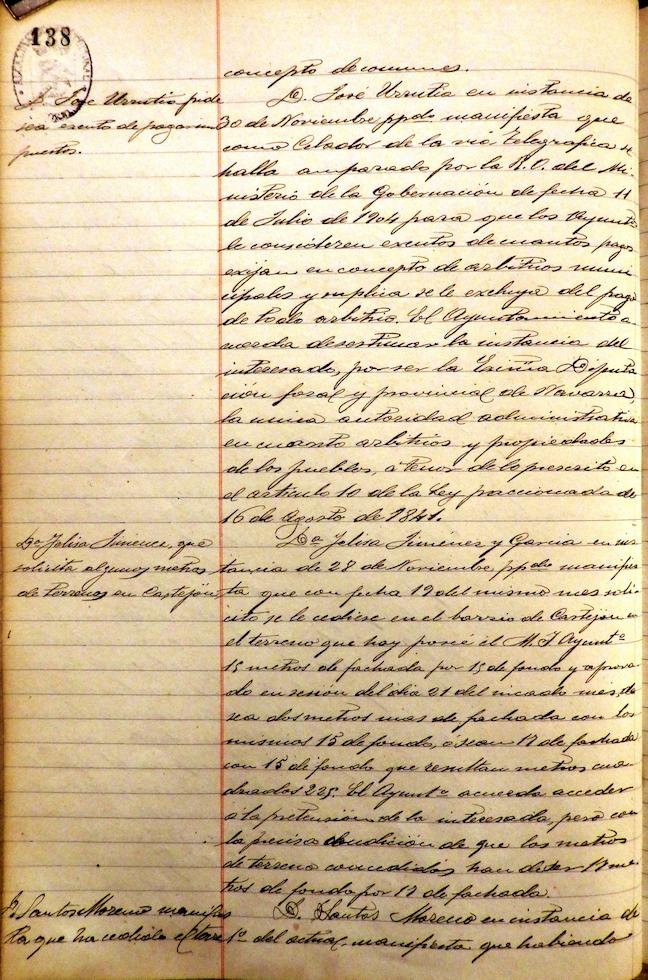 138
concepto de comunes.
D. José Urrutia pide
sea exento de pagar im
puestos.
D. José Urrutia en instancia de
30 de Noviembre ppdo manifiesta que
como Celador de la via telegrafica se
halla amparado por la R.O. del Mi-
nisterio de la Gobernación de fecha 11
de Julio de 1904 para que los Ayuntos
le consideren exentos de cuantos pagos
exijan en concepto de arbitrios muni
cipales y suplica se le excluya del pago
de todo arbitrio. El Ayuntamiento a
cuerda desestimar la instancia del
interesado, por ser la Exma Diputa
ción foral y provincial de Navarra,
la unica autoridad administrativa
en cuanto arbitrios y propiedades
de los pueblos, a tenor de lo prescrito en
el articulo 10 de la Ley paccionada de
16 de Agosto de 1841.
Da Felisa Jimenez, que
solicita algunos metros
de terrenos en Castejón
Da Felisa Jiménez y Garcia en ins
tancia de 28 de Noviembre ppdo manifies
ta que con fecha 19 del mismo mes soli
citó se le cediese en el barrio de Castejón en
el terreno que hoy posee el M. I. Ayunto
15 metros de fachada por 15 de fondo y aproba
do en sesión del dia 21 del indicado mes, de
sea dos metros mas de fachada con los
mismos 15 de fondo, o sean 17 de fachada
con 15 de fondo que resultan metros cua
drados 225. El Ayunto acuerda acceder
a la pretensión de la interesada, pero con
la precisa condición de que los metros
de terreno concedidos han de ser 17 me
tros de fondo por 17 de fachada.
D. Santos Moreno manifies
ta que ha cedido
D. Santos Moreno en instancia de
1o del actual manifiesta que habiendo